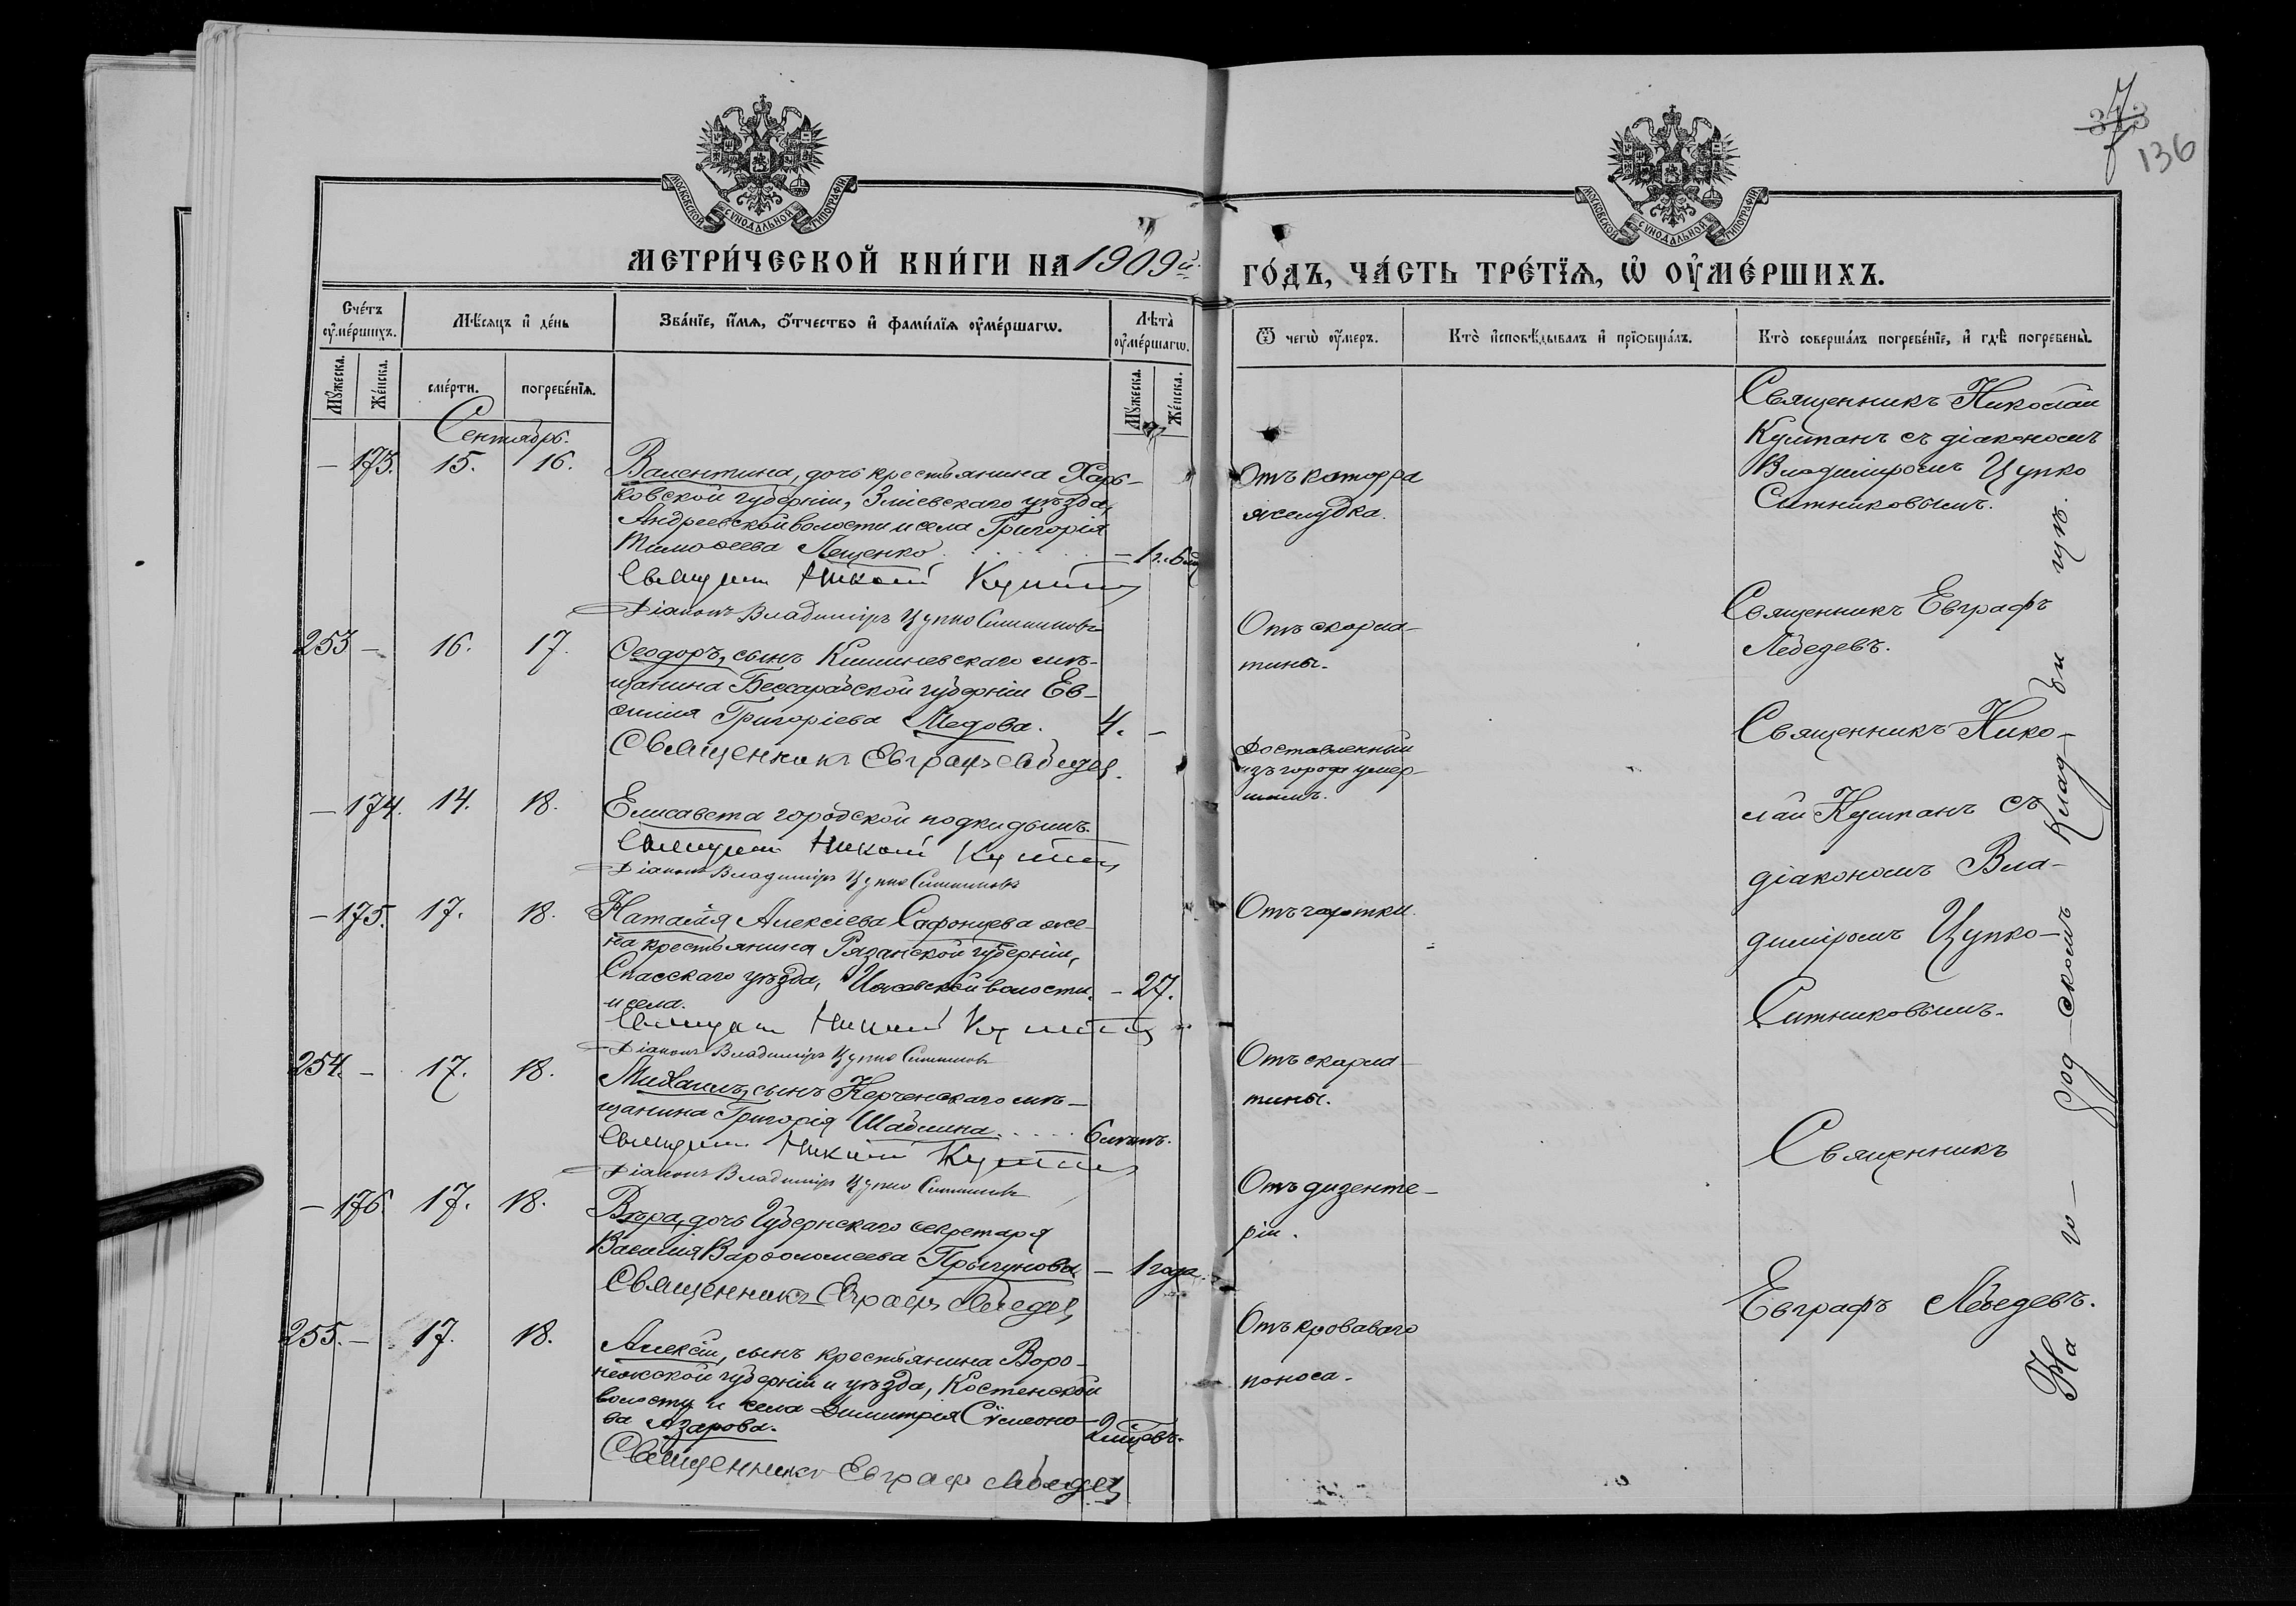 373
7
136
МОСКОВСКОЙ СѴНОДАЛЬНОЙ ТИПОГРАФІИ
МОСКОВСКОЙ СѴНОДАЛЬНОЙ ТИПОГРАФІИ
МЕТРИ́ЧЕСКОЙ КНИ́ГИ НА 1909й
ГО́ДЪ, ЧА́СТЬ ТРЕ́ТЇѦ, Ѡ҆ ОУ҆МЕ́РШИХЪ.
Сче́тъ оу҆ме́ршихъ.
Мѣ́сяцъ и҆ де́нь
Зва́нїе, и҆́мѧ, ѻ҆́тчество и҆ фами́лїѧ оу҆ме́ршагѡ.
Лѣ́та оу҆ме́ршагѡ.
Ѿ чегѡ̀ оу҆́меръ.
Кто̀ и҆сповѣ́дывалъ и҆ прїѡбща́лъ.
Кто̀ соверша́лъ погребе́нїе, и҆ гдѣ̀ погребены̀.
Му́жеска.
Же́нска.
сме́рти.
погребе́нїѧ.
Му́жеска.
Же́нска.
Сентябрь.
– 173. 15. 16.
Валентина, дочь крестьянина Харь-
ковской губерніи, Зміевскаго уѣзда,
Андреевской волости и села Григорія
Тимоѳеева Лещенко. – 1 г. 6 м
Священник Николай Кушпан
Діаконъ Владиміръ Цупко Ситников
Отъ катарра
желудка.
Священникъ Николай
Кушпанъ съ діакономъ
Владиміромъ Цупко
Ситниковымъ.
253 – 16. 17.
Ѳеодоръ, сынъ Кишиневскаго мѣ-
щанина Бессарабской губерніи Ев-
ѳимія Григоріева Медова. 4. –
Священникъ Евграфъ Лебедев.
Отъ скарла-
тины.
Священникъ Евграфъ
Лебедевъ.
– 174. 14. 18.
Елисавета городской подкидышъ.
Священник Николай Кушпан
Діаконъ Владиміръ Цупко Ситников
Доставленный
изъ города умер-
шимъ.
Священникъ Нико-
лай Кушпанъ съ
діакономъ Вла-
диміромъ Цупко-
Ситниковымъ.
– 175. 17. 18.
Наталія Алексіева Сафонцева же-
на крестьянина Рязанской губерніи,
Спасскаго уѣзда, волости – 27.
и села.
Священник Николай Кушпан
Діаконъ Владиміръ Цупко Ситников
Отъ чахотки.
254. – 17. 18.
Михаилъ, сынъ Керченскаго мѣ-
щанина Григорія Шаблина 6 лѣтъ.
Священник Николай Кушпан
Діаконъ Владиміръ Цупко Ситников
Отъ скарла-
тины.
– 176. 17. 18.
Вѣра, дочь Губернскаго секретаря
Василія Варѳоломеева Прыгунова – 1 года.
Священникъ Евграфъ Лебедев
Отъ дизенте-
ріи.
Священникъ
Евграфъ Лебедевъ.
255. – 17. 18.
Алексій, сынъ крестьянина Воро-
нежской губерніи и уѣзда, Костенской
волости и села Димитрія Сѵмеоно-
ва Азарова.
Священникъ Евграф Лебедев
Отъ кроваваго
поноса.
На го-родскомъ кладбищѣ.